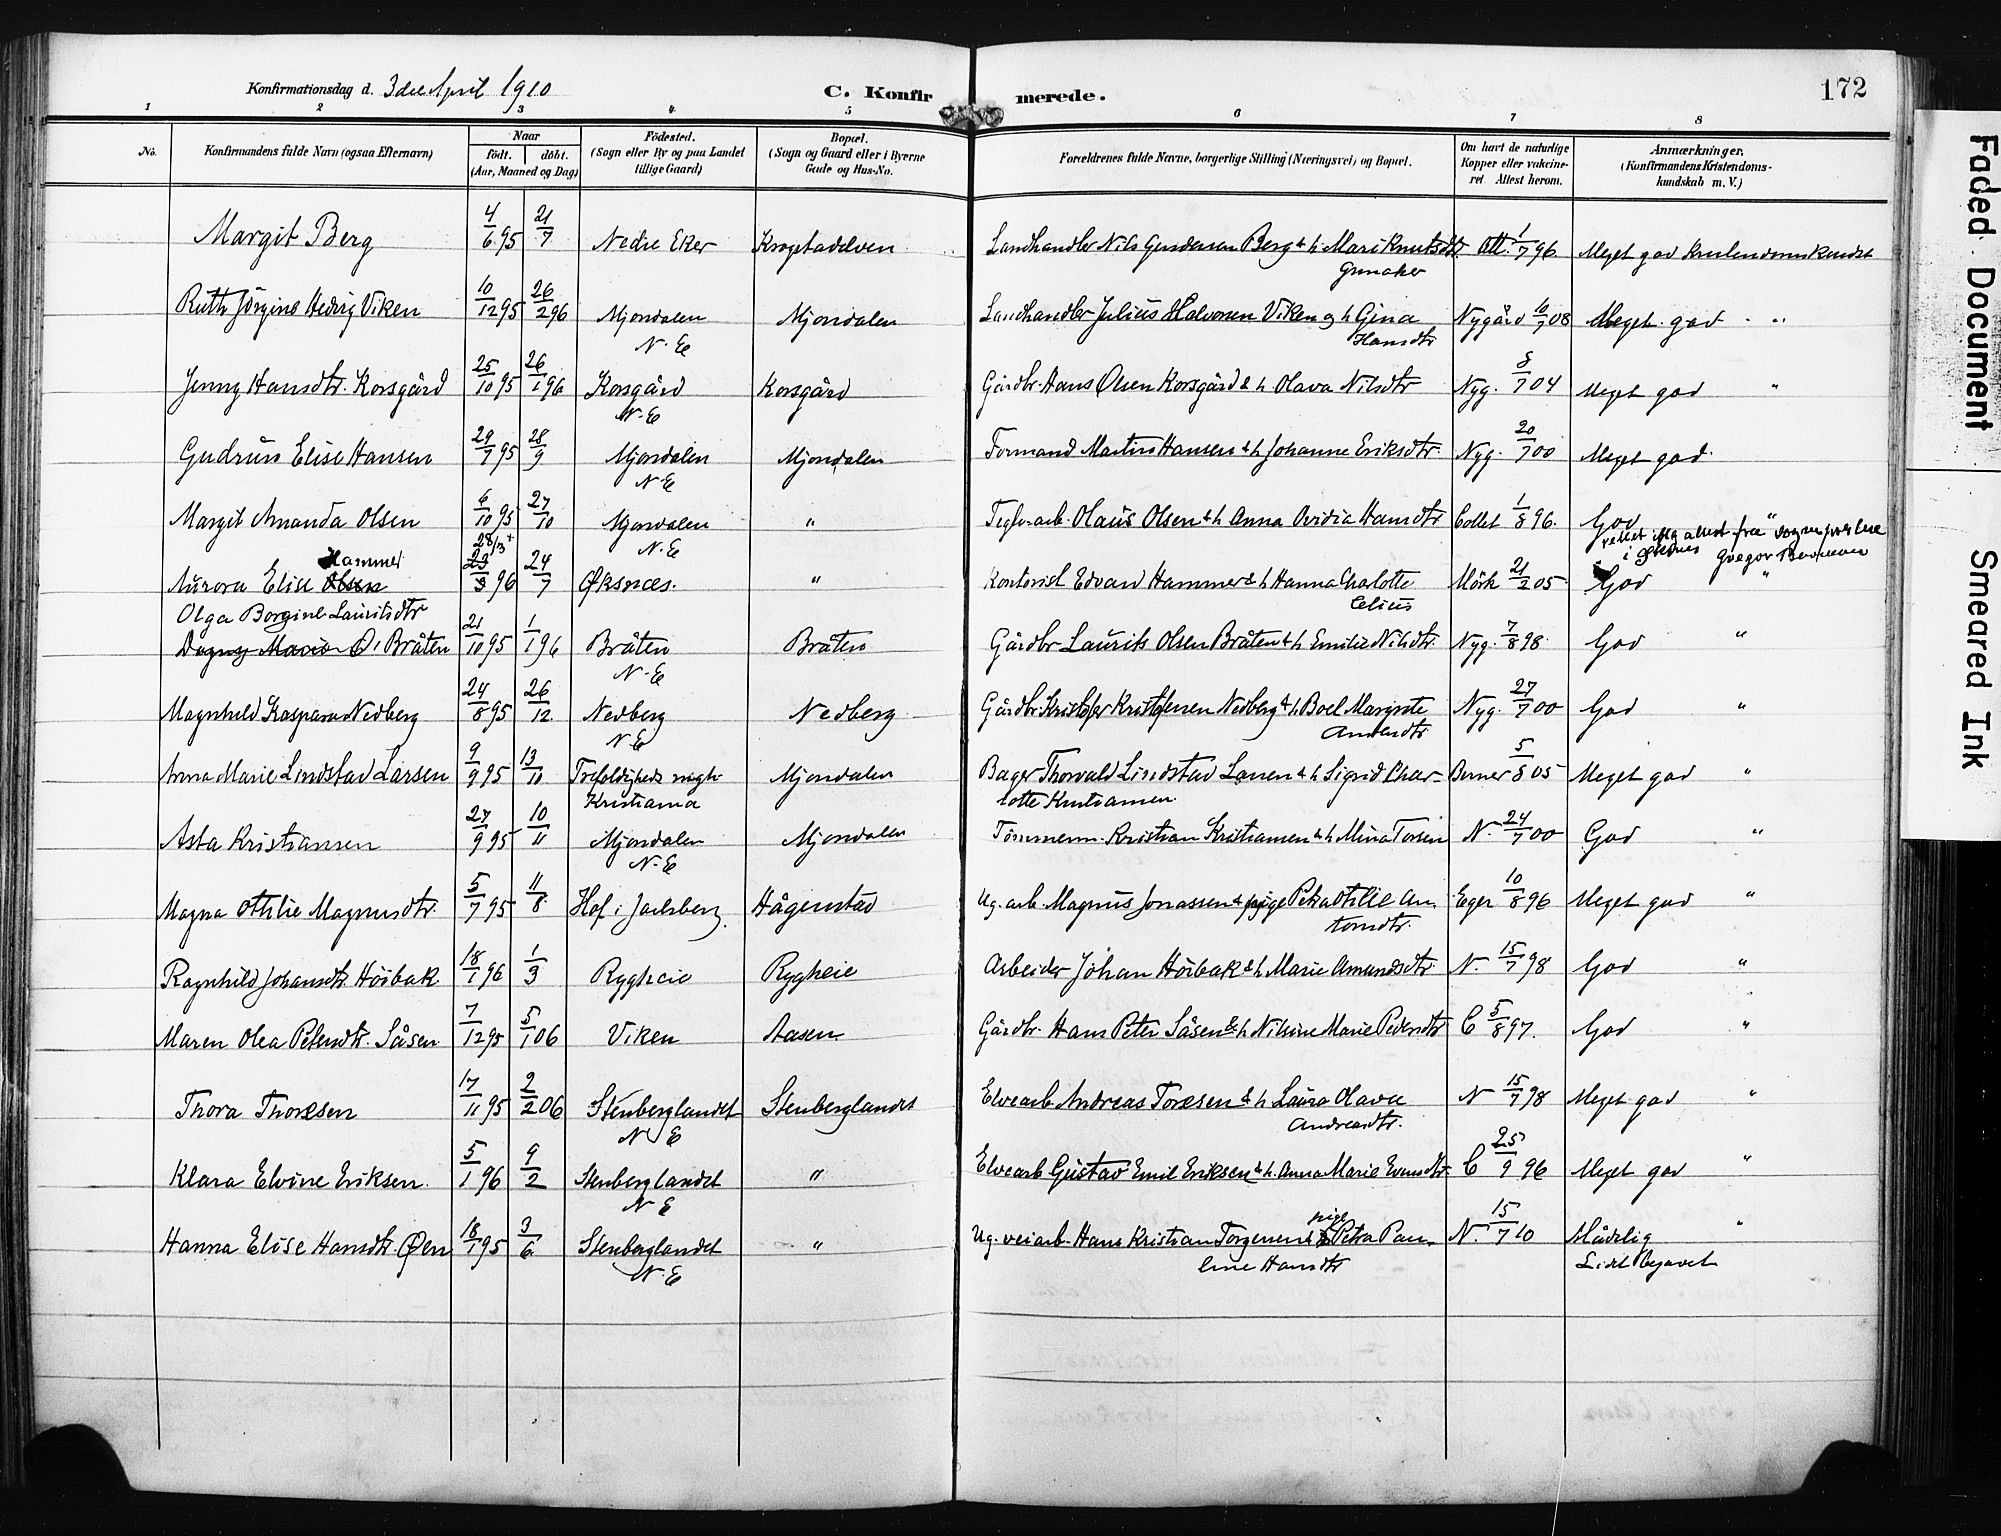 Konfirmationsdag d. 3die April 1910
C. Konfirmerede.
172
1 2 3 4 5 6 7 8
No. Konfirmandens fulde Navn (ogsaa Efternavn) Naar födt. döbt. (Aar, Maaned og Dag) Födested. (Sogn eller By og paa Landet tillige Gaard) Bopæl. (Sogn og Gaard eller i Byerne Gade og Hus-No. Forældrenes fulde Navne, borgerlige Stilling (Næringsvei) og Bopæl. Om havt de naturlige Kopper eller vakcineret. Attest herom. Anmærkninger, (Konfirmandens Kristendomskundskab m. V.)
Margit Berg 4/6 95 21/7 Nedre Eker Krogstadelven Landhandler Nils Berg & h Mari Knutsdtr Ott. 1/7 96. Meget god
Ruth Jörgine Hedvig Viken 10/12 95 26/2 96 Mjondalen N. E Mjondalen Landhandler Julius Halvorsen Viken og h Gina Hansdtr Nygård 10/7 08 Meget god "
Jenny Hansdtr. Korsgård 25/10 95 26/1 96 Korsgård N. E Korsgård Gårdbr. Hans Olsen Korsgård & h Olava Nilsdtr Nyg. 8/7 04 Meget god "
Gudrun Elise Hansen 29/7 95 28/9 Mjondalen N E Mjondalen Formand Martin Hansen & h Johanne Eriksdtr. Nyg. 20/7 00 Meget god.
Margit Amanda Olsen 6/10 95 27/10 Mjondalen N. E " Teglv. arb. Olaus Olsen & h Anna Ovidia Hansdtr Collet 1/8 96. God "
28/3 rettet attest fra i Øksnes
Aurora Elise Olsen Hammer 23/3 96 24/7 Øksnæs. " Kontorist Edvard Hammer & h Hanna Charlotte Celius Mörk 21/2 05 God "
Olga Borgine Lauritsdtr
Dagny Marie O. Bråten 21/10 95 1/1 96 Bråten N. E Bråten Gårdbr Laurits Olsen Bråten & h Emilie Nilsdtr. Nyg. 7/8 98. God "
Magnhild Kaspara Nedberg 24/8 95 26/12. Nedberg N E Nedberg Gårdbr. Kristoffer Kristoffersen Nedberg & h. Boel Margrete Nyg. 27/7 00 God "
Anna Marie Lindstad Larsen 9/9 95 13/10 Trefoldigheds mgh Kristiania Mjondalen Bager Thorvald Lindstad Larsen & h Sigrid Charlotte Kristiansen. Berner 5/8 05 Meget god "
Asta Kristiansen 27/9 95 10/11 Mjondalen N. E Mjondalen Tömmerm. Kristian Kristiansen & h Mina Torsen N. 24/7 00 God "
Magna Ottilie Magnusdtr. 5/7 95 11/8. Hof i Jarlsberg. Hågenstad Ug. arb. Magnus Jonassen & pige Petra Otilie Antonsdtr. Eger 10/8 96 Meget god "
Ragnhild Johansdtr. Hóibak 18/1 96 1/3 Rygheie Rygheie Arbeider Johan Hóibak & h Marie Amundsdtr. N. 15/7 98 God "
Maren Olea Petersdtr. Såsen 7/12 95 5/1 06 Viken Aasen. Gårdbr. Hans Peter Såsen & h Nilsine Marie Pedersdtr C 5/8 97. God "
Thora Thoresen 17/11 95 2/2 06 Stenberglandet N E Stenberglandet Elvearb Andreas Toresen & h Laura Olava Andreasdtr. N 15/7 98 Meget god "
Klara Elvine Eriksen. 5/1 96 9/2 Stenberglandet N E " Elvearb Gustav Emil Eriksen & h. Anna Marie Evensdtr. C 25/9 96 Meget god "
Hanna Elise Hansdtr. Øen 18/1 95 3/6. Stenberglandet N. E " Ug. veiarb. Hans Kristian Torgersen & h pige Petra Pauline Hansdtr N. 15/7 10 Mådelig "
Lidt begavet
Faded Document
Smeared Ink